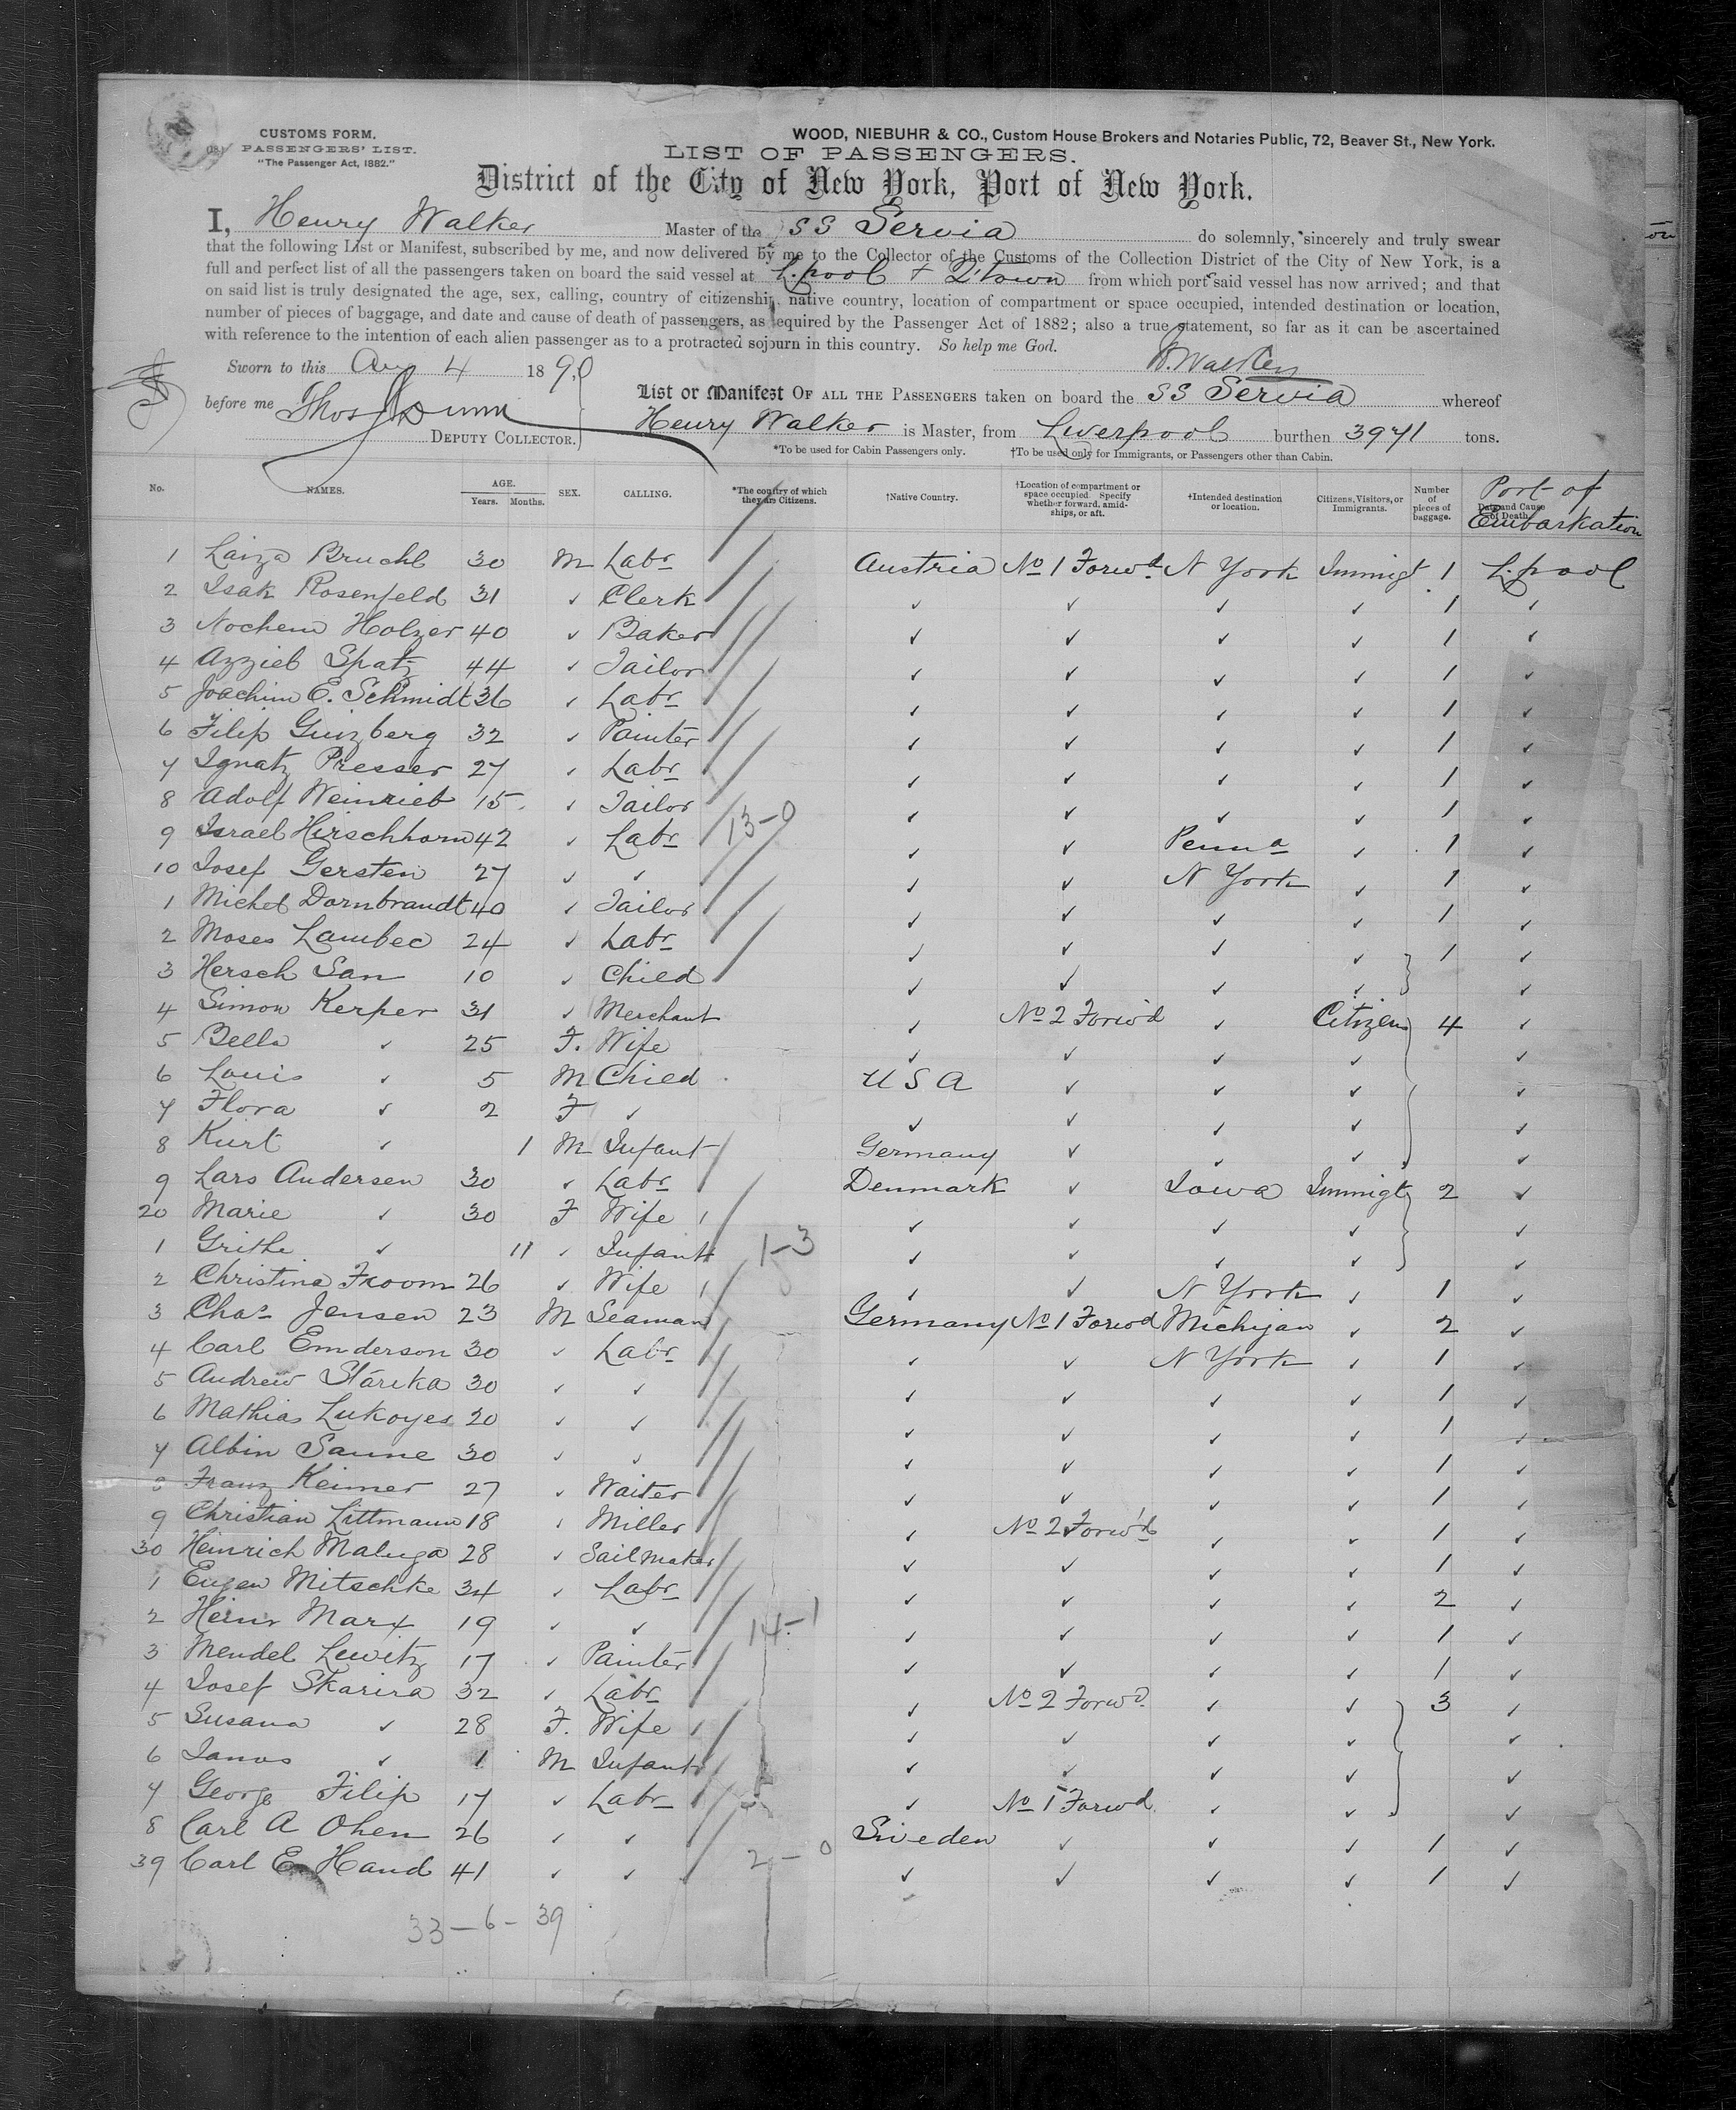 CUSTOMS FORM.
PASSENGERS' LIST.
"The Passenger Act, 1882."
WOOD, NIEBUHR & CO., Custom House Brokers and Notaries Public, 72, Beaver St., New York.
LIST OF PASSENGERS.
District of the City of New York, Port of New York.
I, Henry Walker Master of the SS Servia do solemnly, sincerely and truly swear
that the following List or Manifest, subscribed by me, and now delivered by me to the Collector of the Customs of the Collection District of the City of New York, is a
full and perfect list of all the passengers taken on board the said vessel at L.pool + Q'town from which port said vessel has now arrived; and that
on said list is truly designated the age, sex, calling, country of citizenship, native country, location of compartment or space occupied, intended destination or location,
number of pieces of baggage, and date and cause of death of passengers, as required by the Passenger Act of 1882; also a true statement, so far as it can be ascertained
with reference to the intention of each alien passenger as to a protracted sojourn in this country. So help me God.
H. Walker
Sworn to this Aug 4 1890
List or Manifest OF ALL THE PASSENGERS taken on board the SS Servia whereof
before me Thos Dunn
DEPUTY COLLECTOR.
Henry Walker is Master, from Liverpool burthen 3971 tons.
*To be used for Cabin Passengers only. †To be used only for Immigrants, or Passengers other than Cabin.
No. NAMES. AGE. Years. Months. SEX. CALLING. *The country of which they are Citizens. †Native Country. †Location of compartment or space occupied. Specify whether forward, amidships, or aft. †Intended destination or location. Citizens, Visitors, or Immigrants. Number of pieces of baggage. Date and Cause of Death. Port of Embarkation
1 Laiza Bruchl 30 M Labr Austria No 1 Forwd N York Immigt 1 L.pool
2 Isak Rosenfeld 31 ✓ Clerk ✓ ✓ ✓ ✓ 1 ✓
3 Nochem Holzer 40 ✓ Baker ✓ ✓ ✓ ✓ 1 ✓
4 Azzieb Spatz 44 ✓ Tailor ✓ ✓ ✓ ✓ 1 ✓
5 Joachim E. Schmidt 36 ✓ Labr ✓ ✓ ✓ ✓ 1 ✓
6 Filip Guizberg 32 ✓ Painter ✓ ✓ ✓ ✓ 1 ✓
7 Ignatz Presser 27 ✓ Labr ✓ ✓ ✓ ✓ 1 ✓
8 Adolf Weinrieb 15 ✓ Tailor 13-0 ✓ ✓ ✓ ✓ 1 ✓
9 Israel Hirschhorn 42 ✓ Labr ✓ ✓ Penna ✓ 1 ✓
10 Josef Gersten 27 ✓ ✓ ✓ ✓ N York ✓ 1 ✓
1 Michel Dornbrandt 40 ✓ Tailor ✓ ✓ ✓ ✓ 1 ✓
2 Moses Lambec 24 ✓ Labr ✓ ✓ ✓ ✓ 1 ✓
3 Hersch San 10 ✓ Child ✓ ✓ ✓ ✓ ✓
4 Simon Kerper 31 ✓ Merchant ✓ No 2 Forwd ✓ Citizen 4 ✓
5 Bella ✓ 25 F. Wife ✓ ✓ ✓ ✓ ✓
6 Louis ✓ 5 M Child USA ✓ ✓ ✓ ✓
7 Flora ✓ 2 F ✓ ✓ ✓ ✓ ✓ ✓
8 Kurt ✓ 1 M Infant Germany ✓ ✓ ✓ ✓
9 Lars Andersen 30 ✓ Labr Denmark ✓ Iowa Immigt 2 ✓
20 Marie ✓ 30 F Wife ✓ ✓ ✓ ✓ ✓
1 Grithe ✓ 11 ✓ Infant 1-3 ✓ ✓ ✓ ✓ ✓
2 Christina Froom 26 ✓ Wife ✓ ✓ N York ✓ 1 ✓
3 Chas Jensen 23 M Seaman Germany No 1 Forwd Michigan ✓ 2 ✓
4 Carl Emderson 30 ✓ Labr ✓ ✓ N York ✓ 1 ✓
5 Andrew Starika 30 ✓ ✓ ✓ ✓ ✓ ✓ 1 ✓
6 Mathias Lukoyes 20 ✓ ✓ ✓ ✓ ✓ ✓ 1 ✓
7 Albin Sanne 30 ✓ ✓ ✓ ✓ ✓ ✓ 1 ✓
8 Franz Keimer 27 ✓ Waiter ✓ ✓ ✓ ✓ 1 ✓
9 Christian Littmann 18 ✓ Miller ✓ No 2 Forwd ✓ ✓ 1 ✓
30 Heinrich Maluga 28 ✓ Sailmaker ✓ ✓ ✓ ✓ 1 ✓
1 Eugen Mitschke 34 ✓ Labr ✓ ✓ ✓ ✓ 2 ✓
2 Heinr Marx 19 ✓ ✓ 14-1 ✓ ✓ ✓ ✓ 1 ✓
3 Mendel Lewitz 17 ✓ Painter ✓ ✓ ✓ ✓ 1 ✓
4 Josef Skarira 32 ✓ Labr ✓ No 2 Forwd ✓ ✓ 3 ✓
5 Susana ✓ 28 F. Wife ✓ ✓ ✓ ✓ ✓
6 Janos ✓ 1 M Infant ✓ ✓ ✓ ✓ ✓
7 George Filip 17 ✓ Labr ✓ No 1 Forwd ✓ ✓ ✓
8 Carl A Ohen 26 ✓ ✓ Sweden ✓ ✓ ✓ 1 ✓
39 Carl E Hand 41 ✓ ✓ 2-0 ✓ ✓ ✓ ✓ 1 ✓
33-6-39